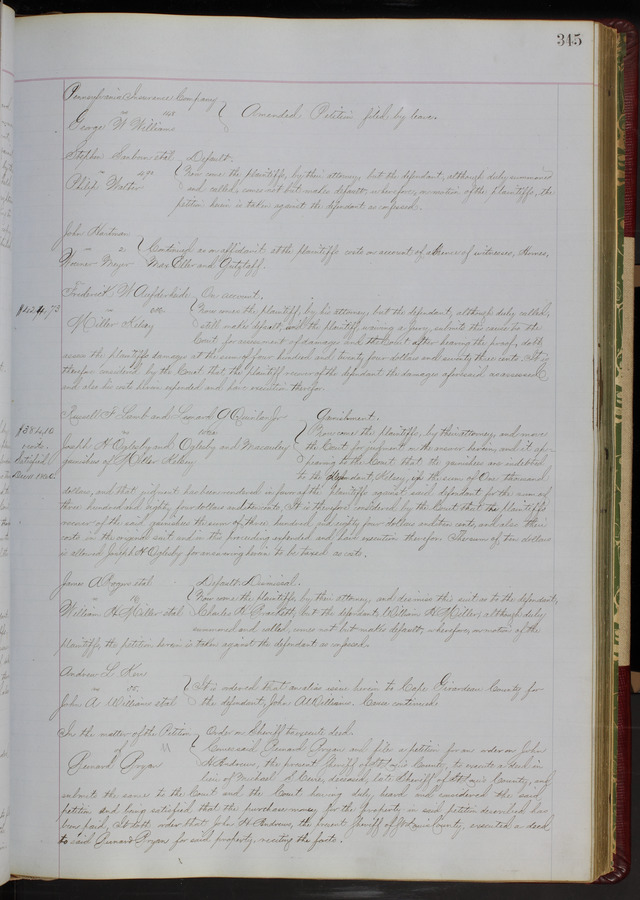 345
Pennsylvania Insurance Company
vs
George W Williams
Amended Petition filed by leave.
Stephen et al
vs
Philip Walter
Default.
Now come the plaintiffs, by their attorney, but the defendant, although duly summoned
and called, comes not but makes default; wherefore, on motion of the plaintiffs, the
petition herein is taken against the defendant as confessed.
John Hartman
vs 2
Werner Meyer
Continued as on affidavit at the plaintiff's costs on account of absence of witnesses,
Max Eller and
$424.73
Frederick W
vs
Miller Kelsey
On account.
Now comes the plaintiff, by his attorney, but the defendant, although duly called,
still makes default, and the plaintiff waiving a jury, submits this cause to the
Court for assessment of damages and the Court after hearing the proof, doth
assess the plaintiff's damages at the sum of four hundred and twenty four dollars and seventy three cents. It is
therefore considered by the Court that the plaintiff recover of the defendant the damages aforesaid as assessed
and also his costs herein expended and have execution therefor.
$384.10
& costs.
Satisfied
Russell F Lamb and Leonard A Quinlan Jr
vs
Joseph H Oglesby and Oglesby and Macauley
garnishees of Miller Kelsey
Garnishment.
Now come the plaintiffs, by their attorney, and move
the Court for judgment on the answer herein, and it ap-
pearing to the Court that the garnishees are indebted
to the defendant, Kelsey, in the sum of One thousand
dollars, and that judgment has been rendered in favor of the plaintiffs against said defendant for the sum of
three hundred and eighty four dollars and ten cents. It is therefore considered by the Court that the plaintiffs
recover of the said garnishees the sum of three hundred and eighty four dollars and ten cents, and also their
costs in the original suit and in this proceeding expended and have execution therefor. The sum of ten dollars
is allowed Joseph H Oglesby for answering herein to be taxed as costs.
James A et al
vs
William H Miller et al
Default. Dismissal.
Now come the plaintiffs, by their attorney, and dismiss this suit as to the defendant,
Charles H but the defendant, William H Miller, although duly
summoned and called, comes not but makes default; wherefore, on motion of the
plaintiffs, the petition herein is taken against the defendant as confessed.
Andrew L Kerr
vs
John A Williams et al
It is ordered that an alias issue herein to Cape Girardeau County for
the defendant, John A Williams. Cause continued.
In the matter of the Petition
of 11
Bernard Bryan
Order on Sheriff to execute deed.
Comes said Bernard Bryan and files a petition for an order on John
H Andrews, the present Sheriff of St Louis County, to execute a deed in
lieu of Michael S deceased, late Sheriff of St Louis County, and
submits the same to the Court and the Court having duly heard and considered the said
petition and being satisfied that the purchase money for the property in said petition described has
been paid, It doth order that John H Andrews, the present Sheriff of St Louis County, execute a deed
to said Bernard Bryan for said property, reciting the facts.